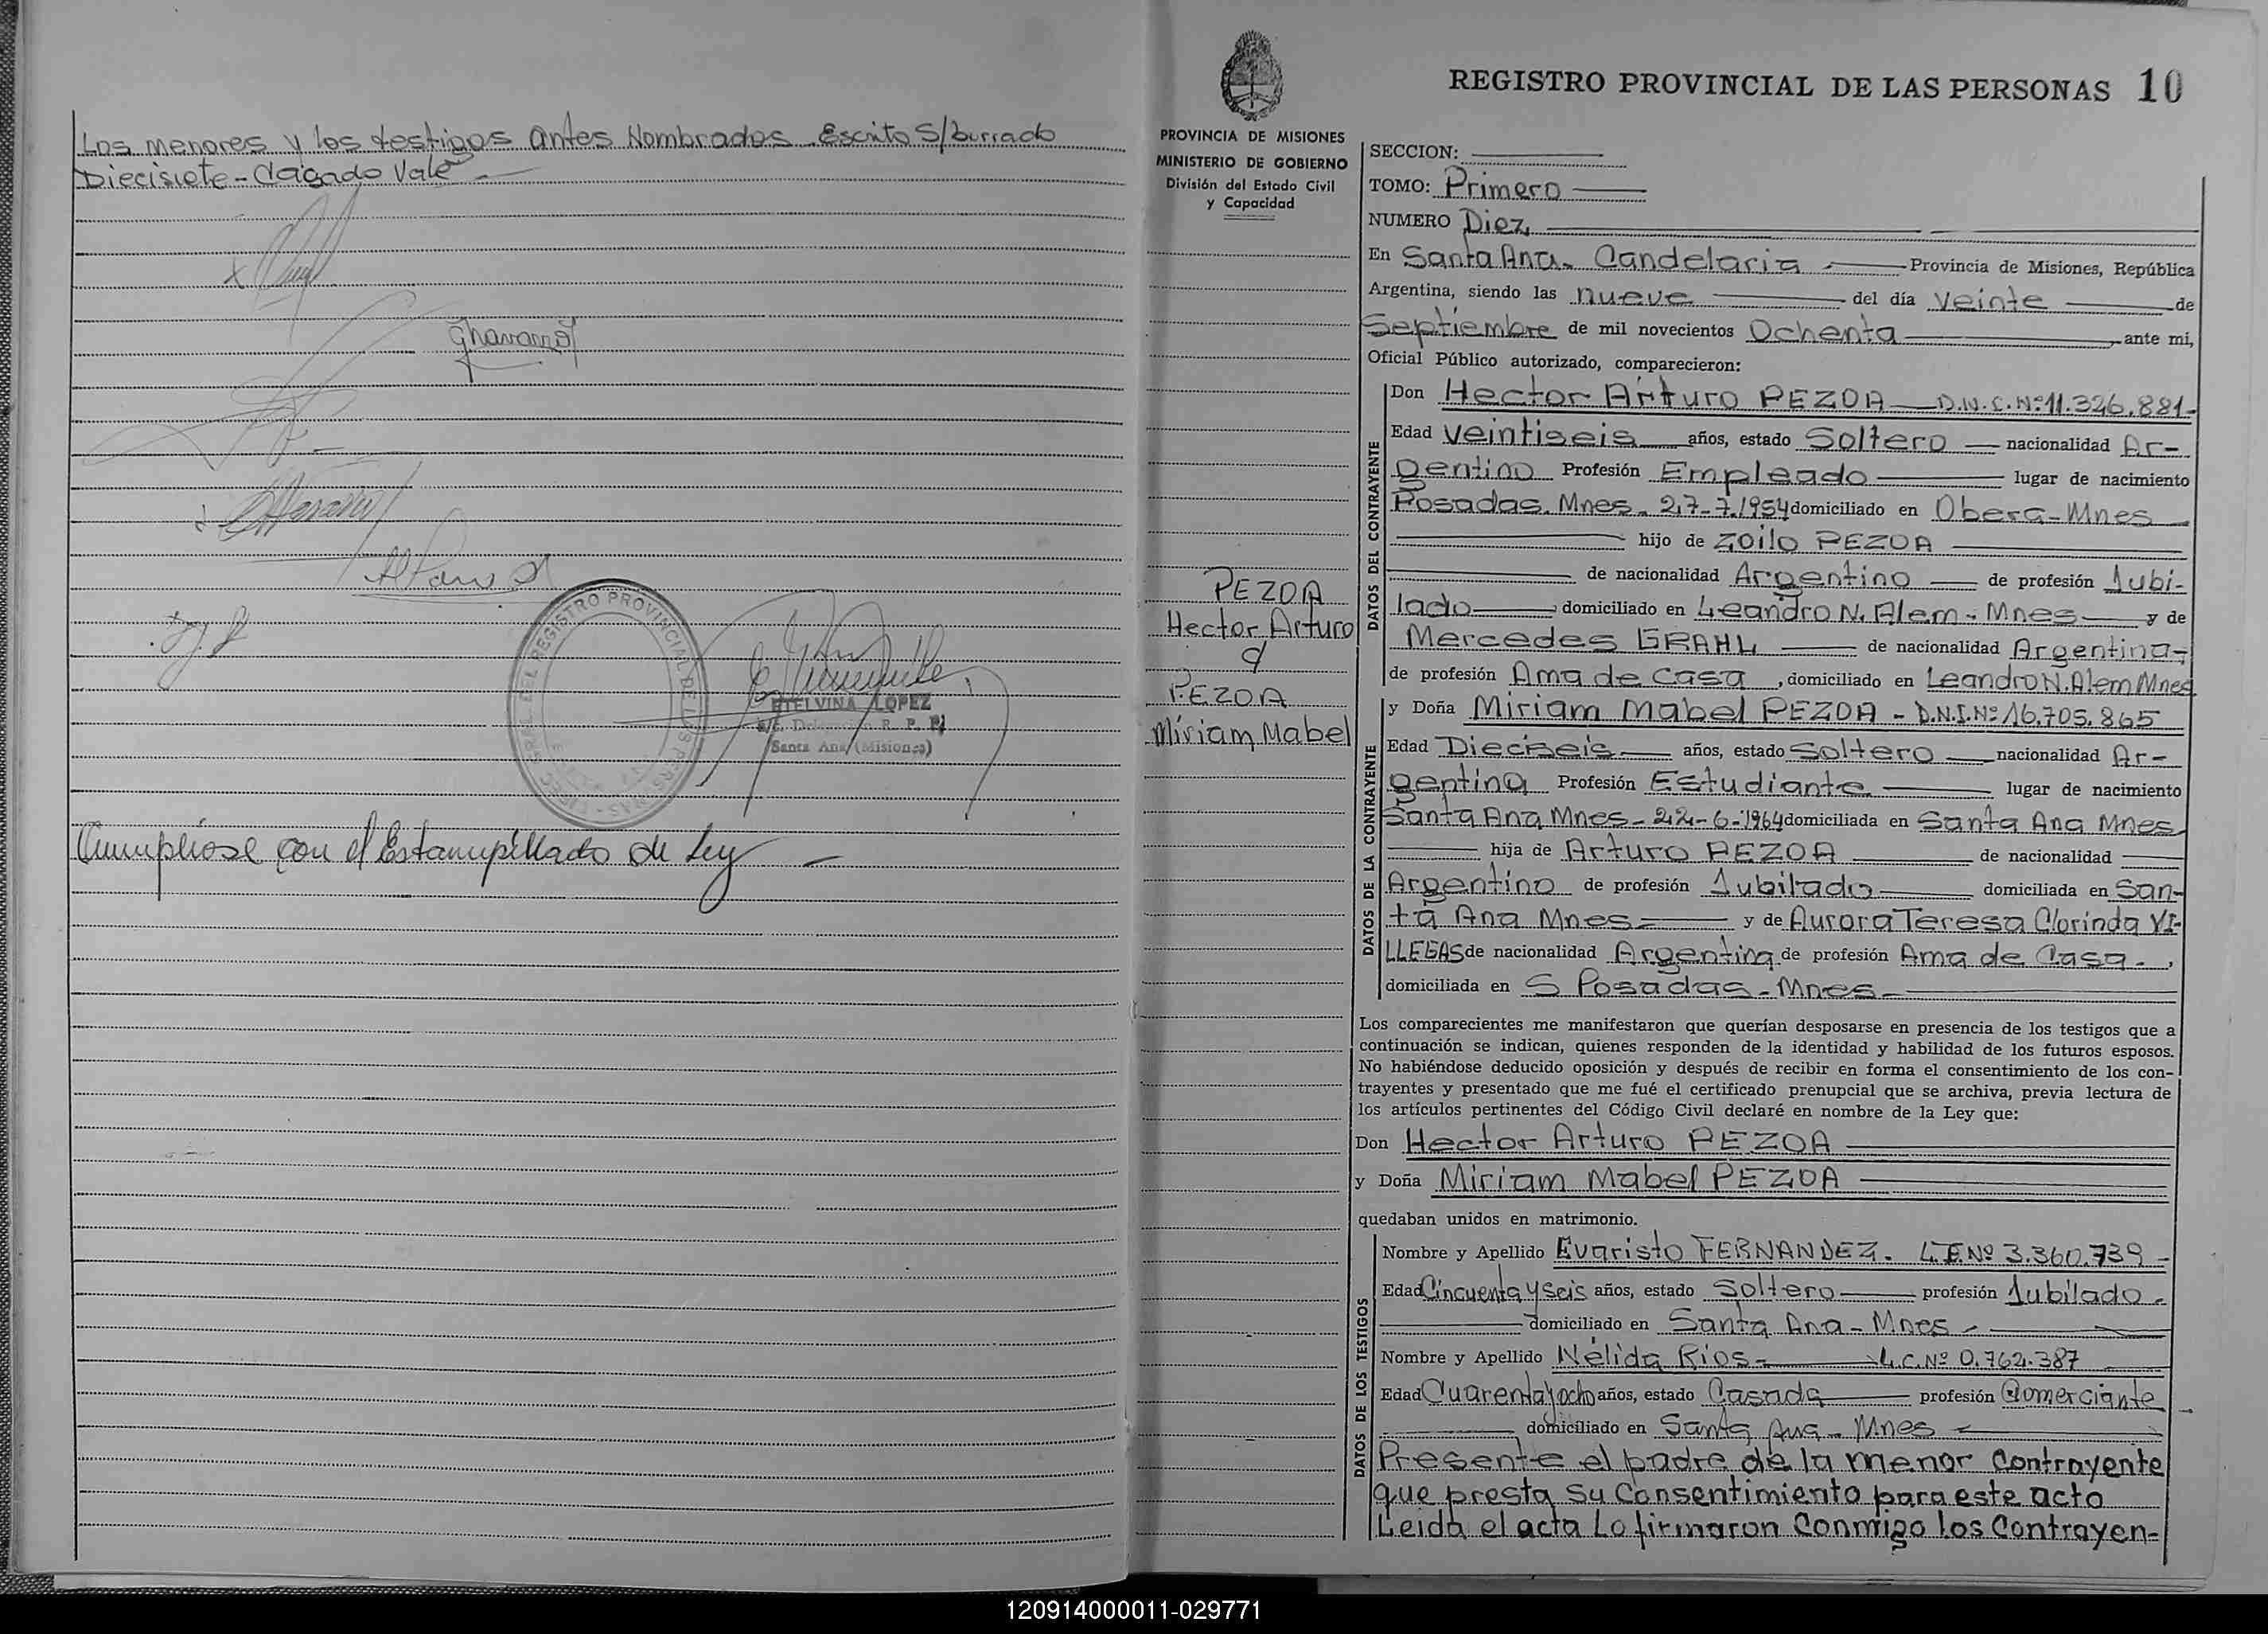 Los menores y los testigos antes Nombrados. Escrito S/burrado
Diecisiete - Vale
Cumpliose con el Estampillado de Ley
ETELVINA LOPEZ
Santa Ana (Misiones)
REGISTRO PROVINCIAL DE LAS PERSONAS 10
PROVINCIA DE MISIONES
MINISTERIO DE GOBIERNO
División del Estado Civil
y Capacidad
PEZOA
Hector Arturo
PEZOA
Miriam Mabel
SECCION:
TOMO: Primero
NUMERO Diez
En Santa Ana - Candelaria Provincia de Misiones, República
Argentina, siendo las nueve del día veinte de
Septiembre de mil novecientos Ochenta ante mi,
Oficial Público autorizado, comparecieron:
DATOS DEL CONTRAYENTE
Don Hector Arturo PEZOA D.N.I. Nº 11.326.881
Edad veintiseis años, estado Soltero nacionalidad Ar-
gentino Profesión Empleado lugar de nacimiento
Posadas. Mnes - 27-7-1954 domiciliado en Obera - Mnes
hijo de Zoilo PEZOA
de nacionalidad Argentino de profesión Jubi-
lado domiciliado en Leandro N. Alem - Mnes y de
Mercedes GRAHL de nacionalidad Argentina
de profesión Ama de Casa, domiciliado en Leandro N. Alem Mnes
DATOS DE LA CONTRAYENTE
y Doña Miriam Mabel PEZOA - D.N.I. Nº 16.705.865
Edad Dieciseis años, estado Soltero nacionalidad Ar-
gentina Profesión Estudiante lugar de nacimiento
Santa Ana Mnes - 22-6-1964 domiciliada en Santa Ana Mnes
hija de Arturo PEZOA de nacionalidad
Argentino de profesión Jubilado domiciliada en San-
ta Ana Mnes y de Aurora Teresa Clorinda VI-
LLEGAS de nacionalidad Argentina de profesión Ama de Casa,
domiciliada en S Posadas - Mnes
Los comparecientes me manifestaron que querían desposarse en presencia de los testigos que a
continuación se indican, quienes responden de la identidad y habilidad de los futuros esposos.
No habiéndose deducido oposición y después de recibir en forma el consentimiento de los con-
trayentes y presentado que me fué el certificado prenupcial que se archiva, previa lectura de
los artículos pertinentes del Código Civil declaré en nombre de la Ley que:
Don Hector Arturo PEZOA
y Doña Miriam Mabel PEZOA
quedaban unidos en matrimonio.
DATOS DE LOS TESTIGOS
Nombre y Apellido Evaristo FERNANDEZ. L.E. Nº 3.360.739
Edad Cincuenta y Seis años, estado Soltero profesión Jubilado
domiciliado en Santa Ana - Mnes
Nombre y Apellido Nélida Rios L.C. Nº 0.762.387
Edad Cuarenta y ocho años, estado Casada profesión Comerciante
domiciliado en Santa Ana - Mnes
Presente el padre de la menor Contrayente
que presta su Consentimiento para este acto
Leida el acta Lo firmaron Conmigo los Contrayen-
120914000011-029771